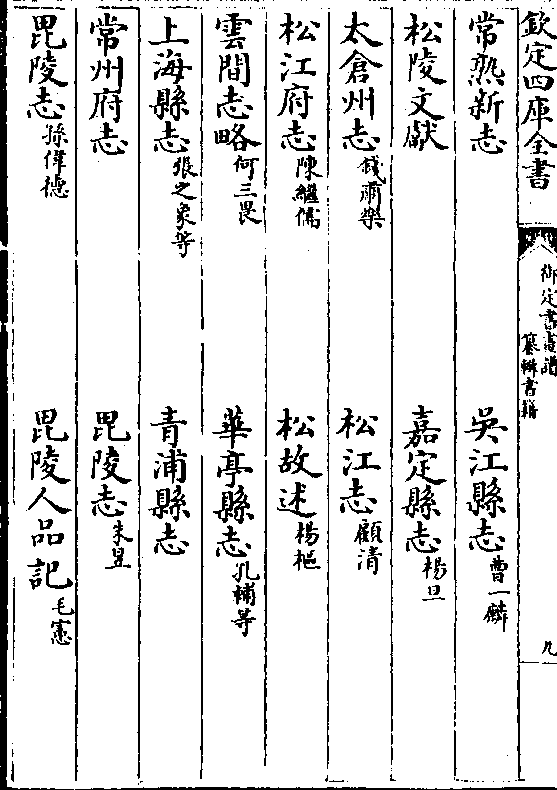 欽定四庫全書
御定書畫譜
纂輯書籍
九
常熟新志 吳江縣志曹一麟
松陵文獻 嘉定縣志楊旦
太倉州志錢肅樂 松江志顧清
松江府志陳繼儒 松故述楊樞
雲間志略何三畏 華亭縣志孔輔等
上海縣志張之象等 青浦縣志
常州府志 毘陵志朱昱
毘陵志孫偉德 毘陵人品記毛憲